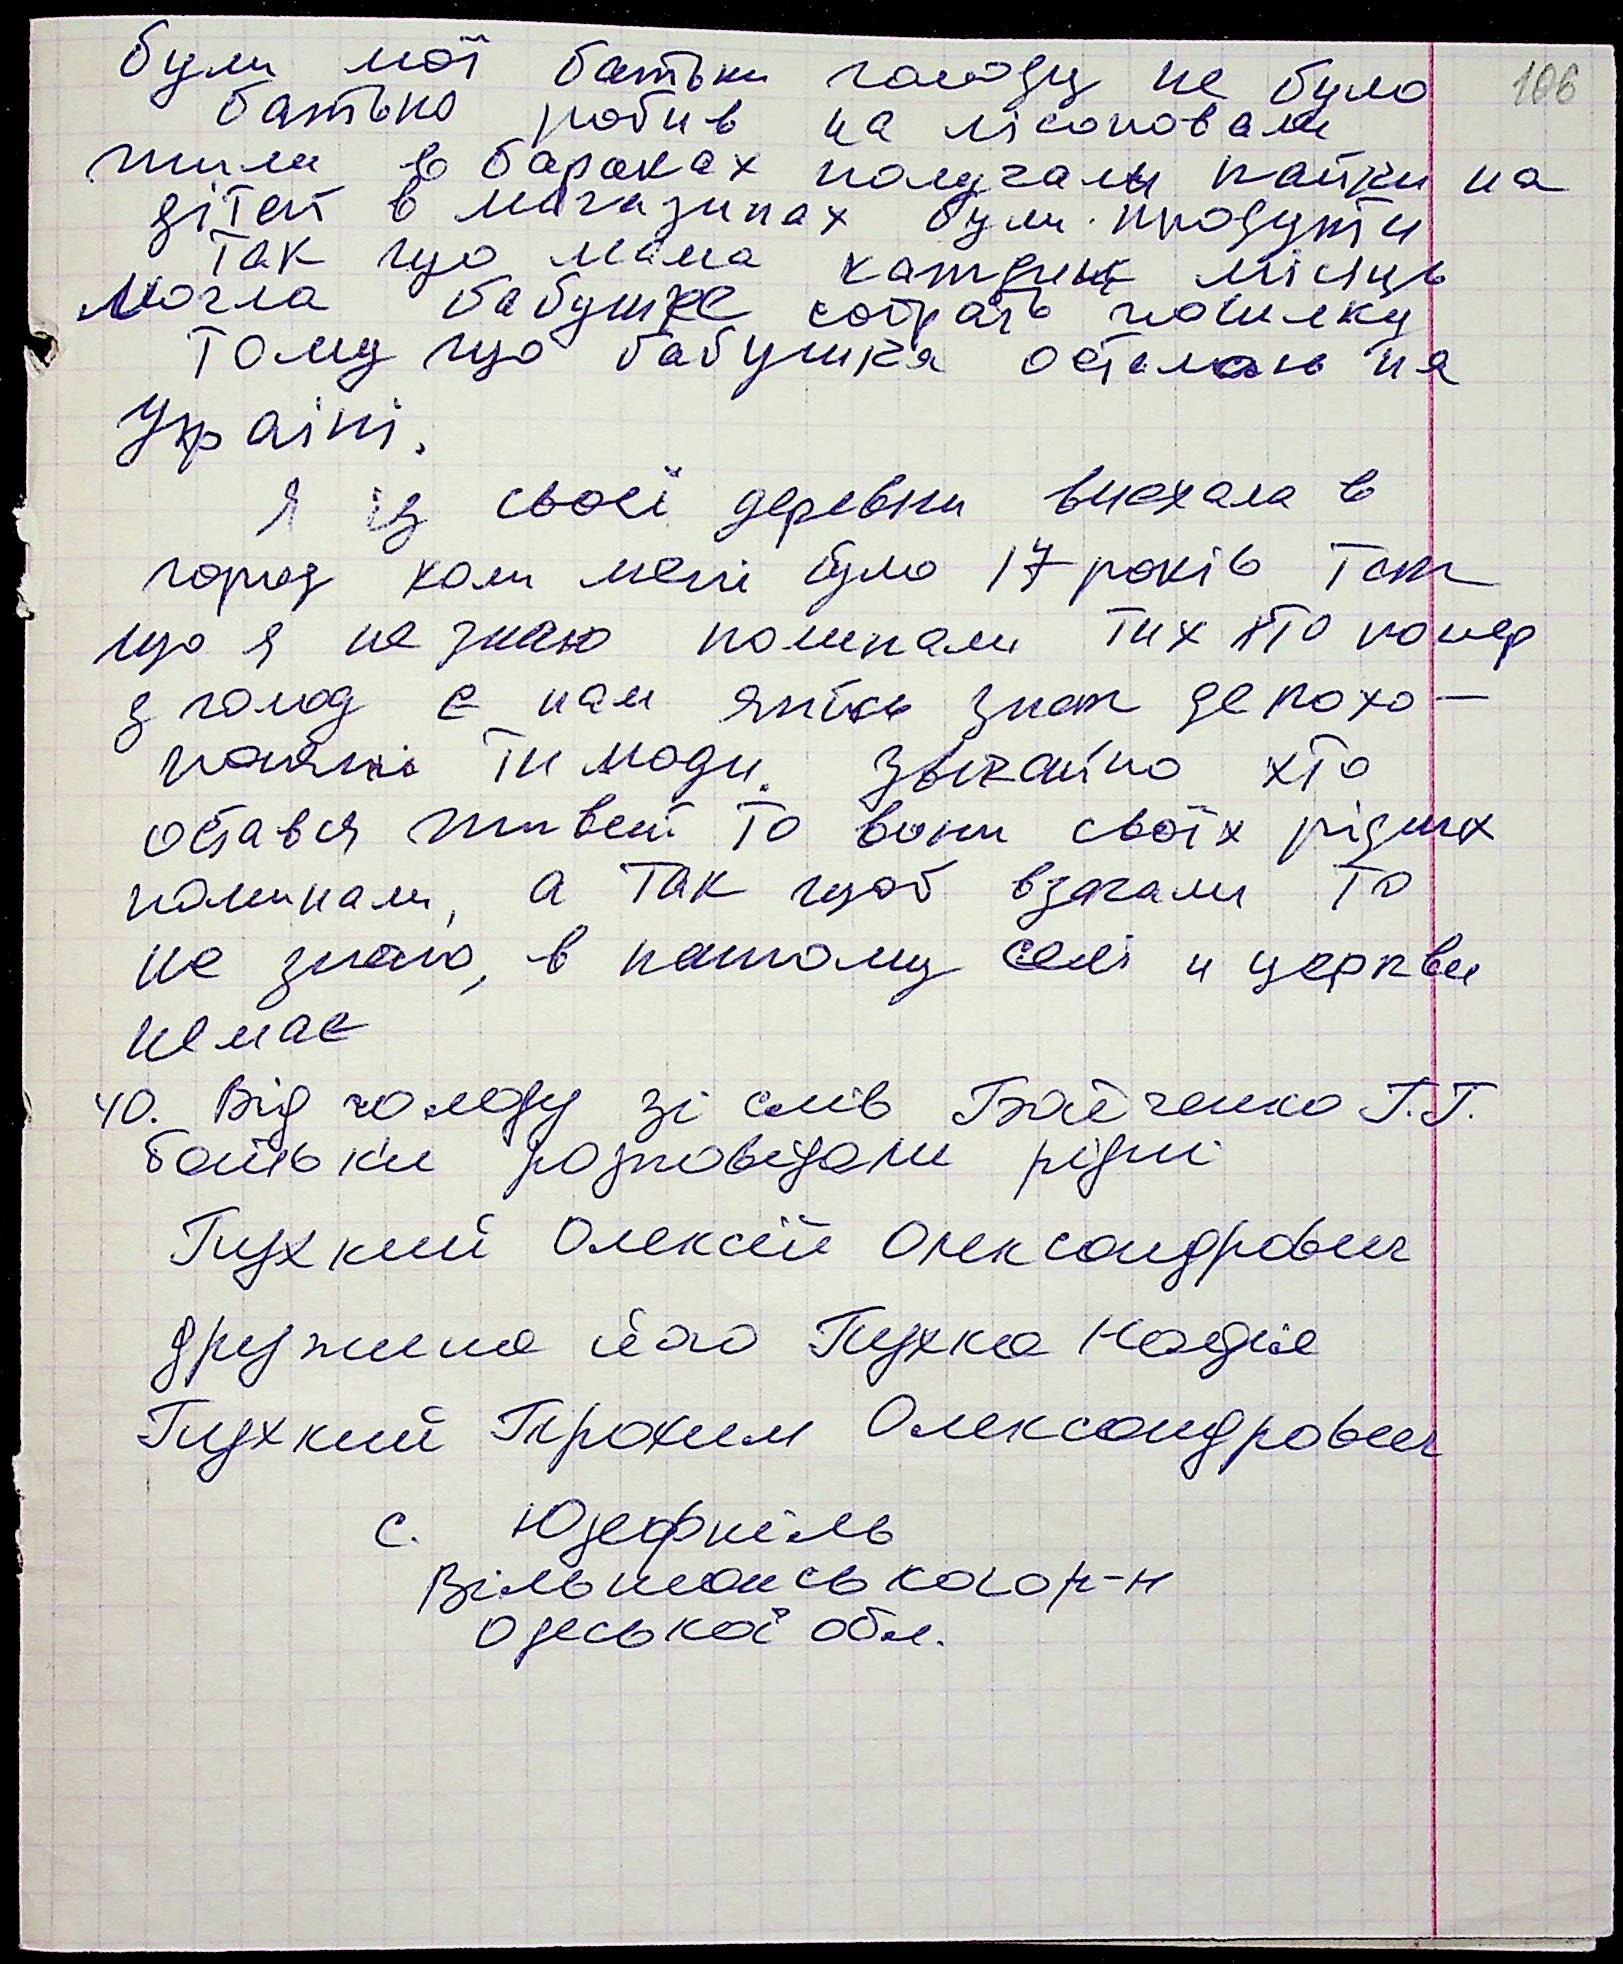 були мої батьки голоду не було
106
батько робив на лісоповали
жили в бараках получали пайки на
дітей в магазинах були продукти
так що мама каждий місяць
могла бабушке собрать посилку
тому що бабушка осталась на
Україні.
Я із своєї деревни виехала в
город коли мені було 17 років так
що я не знаю поминали тих хто помер
з голод є там якісь знак де похо-
роняні ти люди. Звичайно хто
остався живей то вони своїх рідних
поминали, а так щоб взагали то
не знаю, в нашому селі и церкви
немає
40. Від голоду зі слів Бойченко Г.Г.
батьки розповідали рідні
Глухкий Олексій Олександрович
дружина його Глухка Надія
Глухкий Прохим Олександрович
с. Юзефпіль
Вільшанського р-н
Одеської обл.